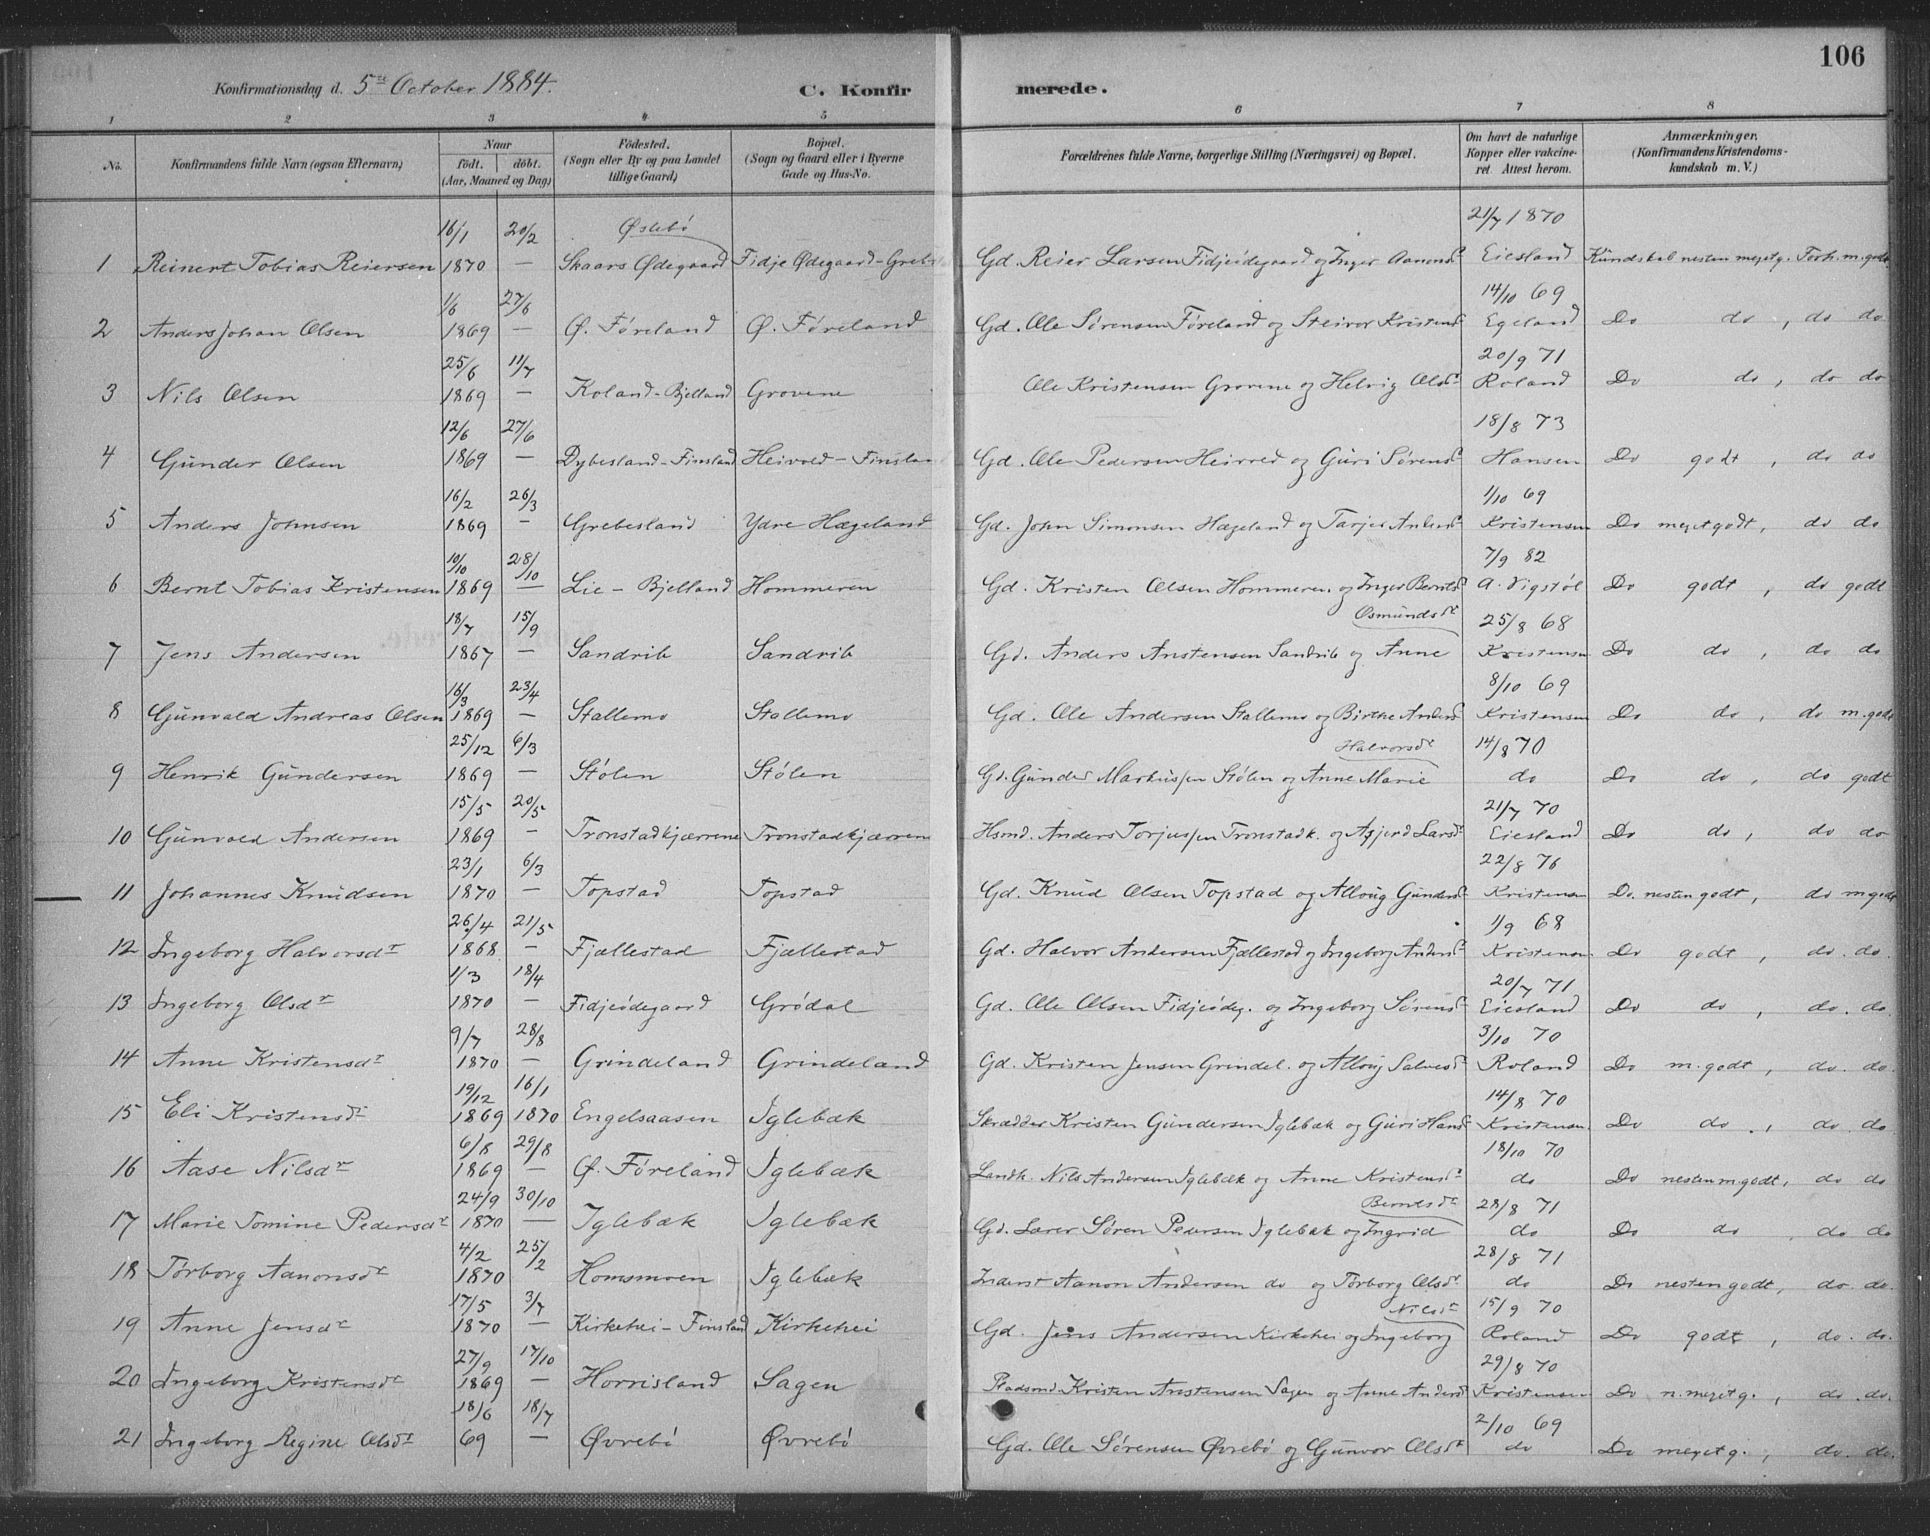 106
Konfirmationsdag d. 5te October 1884.
C. Konfirmerede.
1 2 3 4 5 6 7 8
No.
Konfirmandens fulde Navn (ogsaa Efternavn)
Naar
födt. döbt.
(Aar, Maaned og Dag)
Födested.
(Sogn eller By og paa Landet
tillige Gaard)
Bopæl.
(Sogn og Gaard eller i Byerne
Gade og Hus-No.
Forældrenes fulde Navne, borgerlige Stilling (Næringsvei) og Bopæl.
Om havt de naturlige
Kopper eller vakcine-
ret Attest herom.
Anmærkninger.
(Konfirmandens Kristendoms-
kundskab m. V.)
16/1 20/2 Øslebö 21/7 1870
1 Reinert Tobias Reiersen 1870 — Skaars Ødegaard Fidje Ødegaard - Greb Gd. Reier Larsen Fidjeödegaard og Inger Aanonsdt Eiesland Kundskab nesten meget g. Forh. m. godt
1/6 27/6 14/10 69
2 Anders Johan Olsen 1869 — Ø. Föreland Ø. Föreland Gd. Ole Sörensen Föreland og Steivor Kristensdt Egeland Do do, do do
25/6 11/7 20/9 71
3 Nils Olsen 1869 — Koland - Bjelland Grovene Ole Kristensen Grovene og Helvig Olsdt Roland Do do, do do
12/6 27/6 18/8 73
4 Gunder Olsen 1869 — Dybesland - Finsland Heivold - Finslan Gd. Ole Pedersen Heivold og Guri Sörensdt Hansen Do godt, do do
16/2 26/3 1/10 69
5 Anders Johnsen 1869 — Grebesland Ydre Hægeland Gd. John Simonsen Hægeland og Tarjer Andersdt Kristensen Do meget godt, do do
10/10 28/10 7/9 82
6 Bernt Tobias Kristensen 1869 — Lie - Bjelland Hommeren Gd. Kristen Olsen Hommeren og Inger Berntsdt A. Vigstöl Do godt, do godt
18/7 15/9 Osmundsdt 25/8 68
7 Jens Andersen 1867 — Sandrib Sandrib Gd. Anders Anstensen Sandrib og Anne Kristensen Do do, do do
16/3 23/4 8/10 69
8 Gunvald Andreas Olsen 1869 — Stallemo Stallemo Gd. Ole Andersen Stallemo og Birthe Andersdt Kristensen Do do, do m. godt
25/12 6/3 Halvorsdt 14/8 70
9 Henrik Gundersen 1869 — Stölen Stölen Gd. Gunder Markussen Stölen og Anne Marie do Do do, do godt
15/5 20/5 21/7 70
10 Gunvald Andersen 1869 — Tronstadkjærrene Tronstadkjærren Hsmd. Anders Torjussen Tronstadk. og Asjerd Larsdt Eiesland Do do, do do
23/1 6/3 22/8 76
11 Johannes Knudsen 1870 — Topstad Topstad Gd. Knud Olsen Topstad og Alloug Gundersdt Kristensen Do. nesten godt, do m godt
26/4 21/5 1/9 68
12 Ingeborg Halvorsdt 1868 — Fjællestad Fjællestad Gd. Halvor Andersen Fjællestad og Ingeborg Andersdt Kristensen Do godt, do. do.
1/3 18/4 20/7 71
13 Ingeborg Olsdt 1870 — Fidjeödegaard Grödal Gd. Ole Olsen Fidjeödeg. og Ingeborg Sörensdt Eiesland Do do, do. do.
9/7 28/8 3/10 70
14 Anne Kristensdt 1870 — Grindeland Grindeland Gd. Kristen Jensen Grindel. og Alloug Salvesdt Roland Do m. godt, do. do.
19/12 16/1 14/8 70
15 Eli Kristensdt 1869 1870 Engelsaasen Iglebæk Skrædder Kristen Gundersen Iglebæk og Guri Hansdt Kristensen. Do do, do. do
6/8 29/8 18/10 70
16 Aase Nilsdt 1869 — Ø. Föreland Iglebæk Landh. Nils Andersen Iglebæk og Anne Kristensdt do Do nesten m godt, do do
24/9 30/10 Berntsdt 28/8 71
17 Marie Tomine Pedersdt 1870 — Iglebæk Iglebæk Gd. Lærer Sören Pedersen Iglebæk og Ingrid do Do do do do
4/2 25/2 28/8 71
18 Törborg Aanonsdt 1870 Homsmoen Iglebæk Inderst Aanon Andersen do og Törborg Olsdt do Do nesten godt, do. do.
17/5 3/7 Nilsdt 15/9 70
19 Anne Jensdt 1870 — Kirkehei - Finsland Kirkehei Gd. Jens Andersen Kirkehei og Ingeborg Roland Do godt, do. do.
27/9 17/10 29/8 70
20 Ingeborg Kristensdt 1869 — Horrisland Sagen Pladsmd. Kristen Anstensen Sagen og Anne Andersdt Kristensen Do n. meget g., do. do.
18/6 18/7 2/10 69
21 Ingeborg Regine Olsdt 69 — Øvrebö Øvrebö Gd. Ole Sörensen Øvrebö og Gunvor Olsdt do Do meget g., do. do.